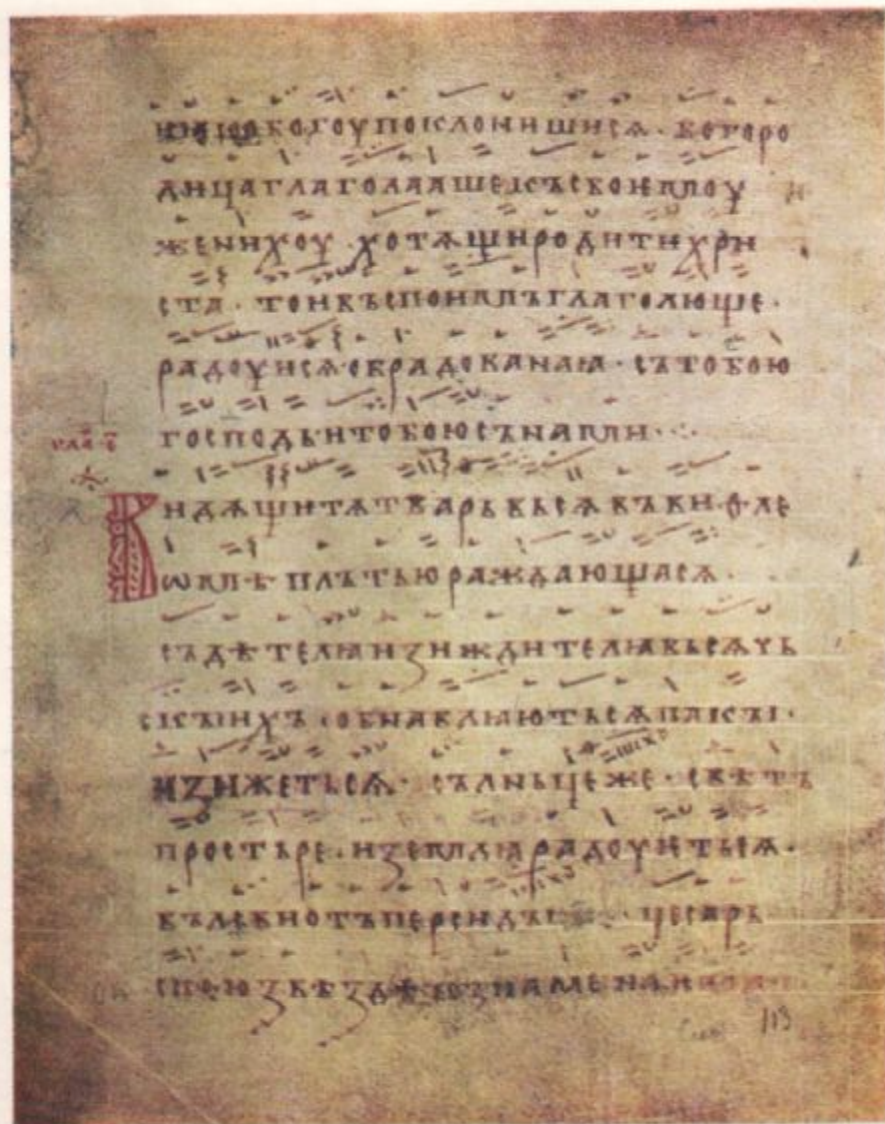 богоу поклонишисѧ · богоро
дица глаголааше къ своѥмоу
жениху · хотѧщи родити хри
ста · то невъспоемлъ глаголюще ·
радоуисѧ обрадованаꙗ · съ тобою
господь и тобою съ нами ·
глас в
Видѧщи тѧ тварь вьсѧ въ виѳле
ѡмѣ плътью раждающасѧ ·
съдѣтелꙗ и зиждителꙗ вьсѧчь
скъихъ · обнавлꙗютьсѧ
изнижетьсѧ · сълньце же · свѣтъ
простьре · и землꙗ радоуѥтьсѧ ·
вълсви отъ персидъ · цесарь
ѕвѣздѣ
113